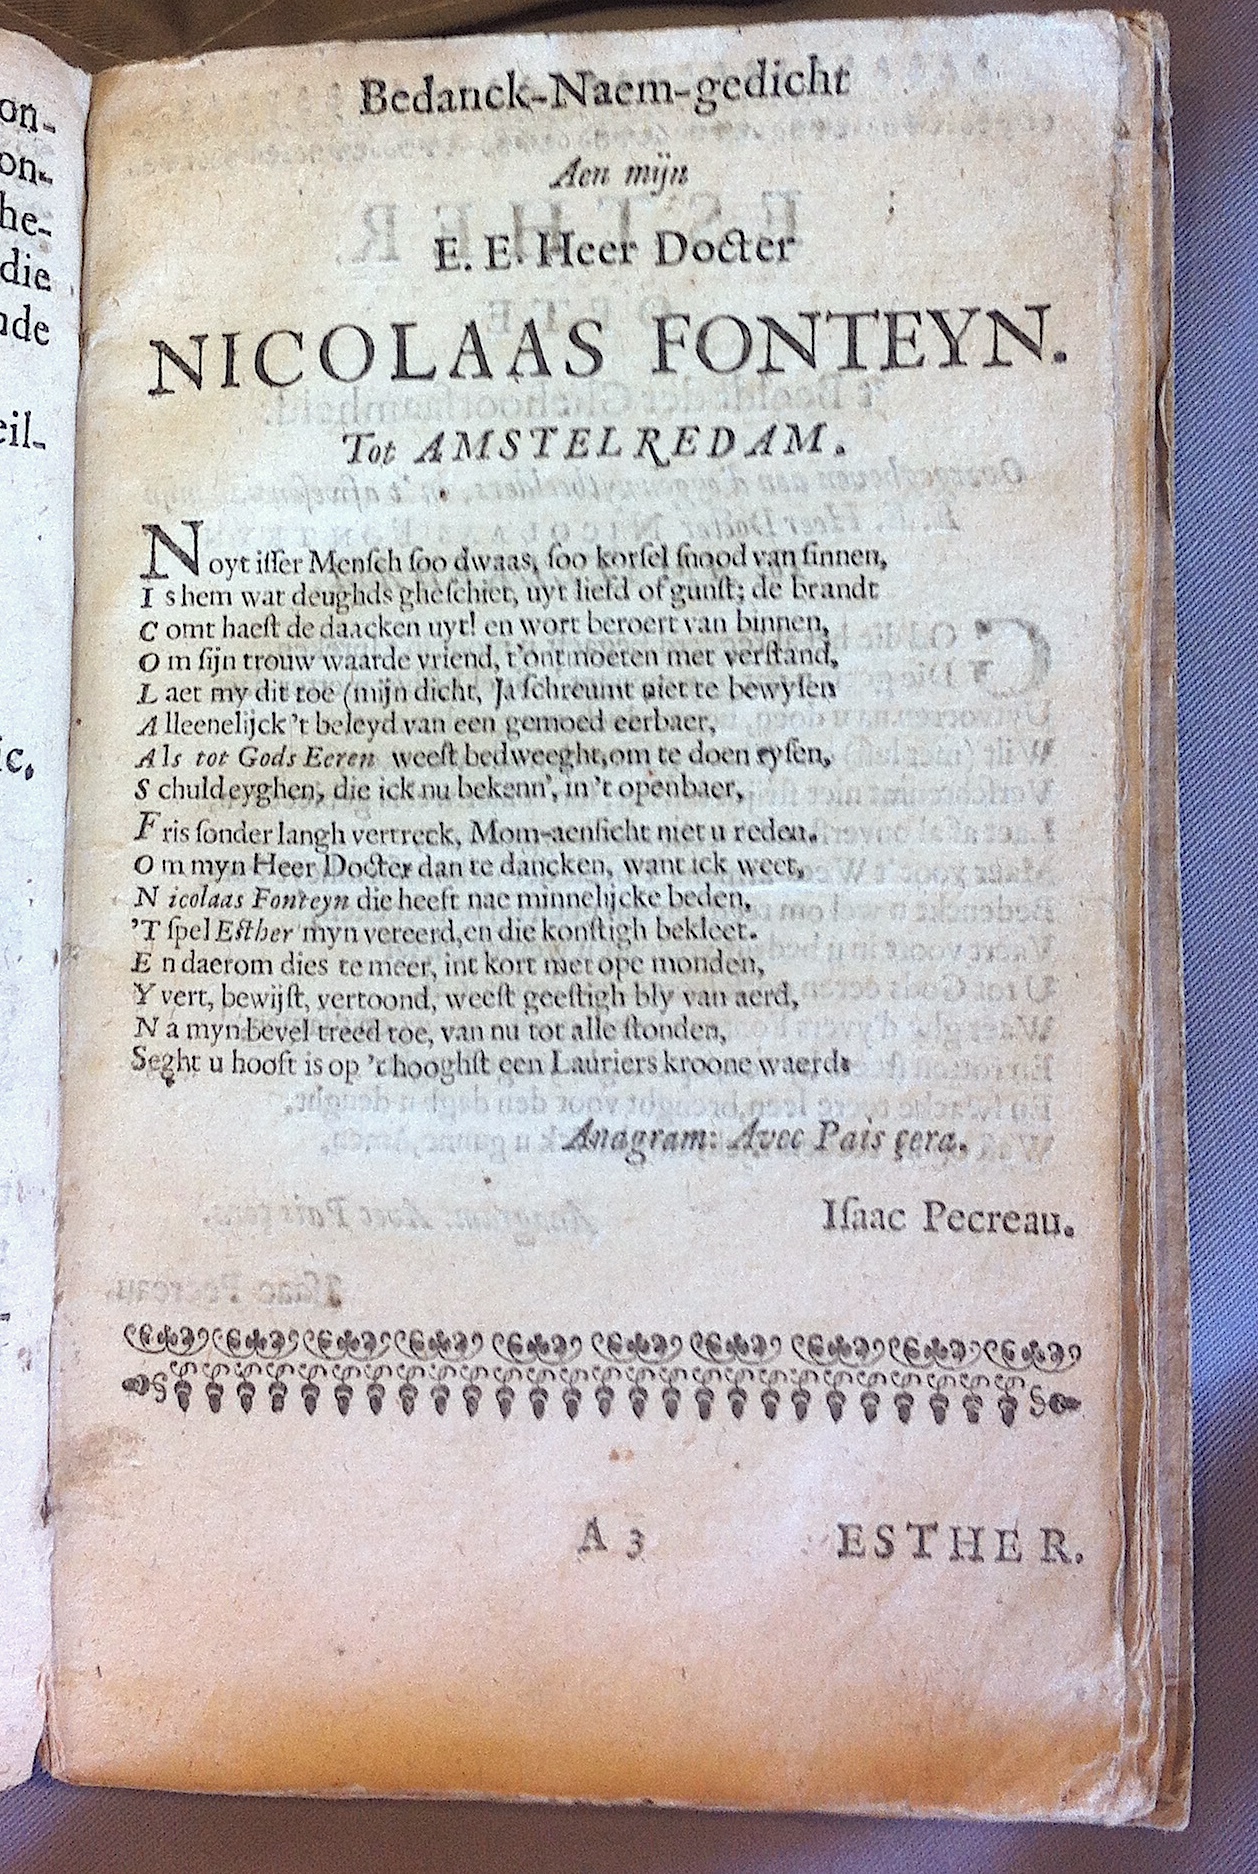 on-
on-
he-
die
nde
eil-
ic.
Bedanck-Naem-gedicht
Aen mijn
E. E. Heer Docter
NICOLAAS FONTEYN.
Tot AMSTELREDAM.
Noyt isser Mensch soo dwaas, soo korsel snood van sinnen,
Is hem wat deughds gheschiet, uyt liefd of gunst; de brandt
Comt haest de daacken uyt! en wort beroert van binnen,
Om sijn trouw waarde vriend, t'ontmoeten met verstand,
Laet my dit toe (mijn dicht, Ja schreumt niet te bewysen
Alleenelijck 't beleyd van een gemoed eerbaer,
Als tot Gods Eeren weest bedweeght, om te doen rysen,
Schuld eyghen, die ick nu bekenn', in 't openbaer,
Fris sonder langh vertreck, Mom-aensicht niet u reden.
Om myn Heer Docter dan te dancken, want ick weet,
Nicolaas Fonteyn die heeft nae minnelijcke beden,
'T spel Esther myn vereerd, en die konstigh bekleet.
En daerom dies te meer, int kort met ope monden,
Yvert, bewijst, vertoond, weest geestigh bly van aerd,
Na myn bevel treed toe, van nu tot alle stonden,
Seght u hooft is op 't hooghst een Lauriers kroone waerd:
Anagram: Avec Pais çera.
Isaac Pecreau.
A 3 ESTHER.